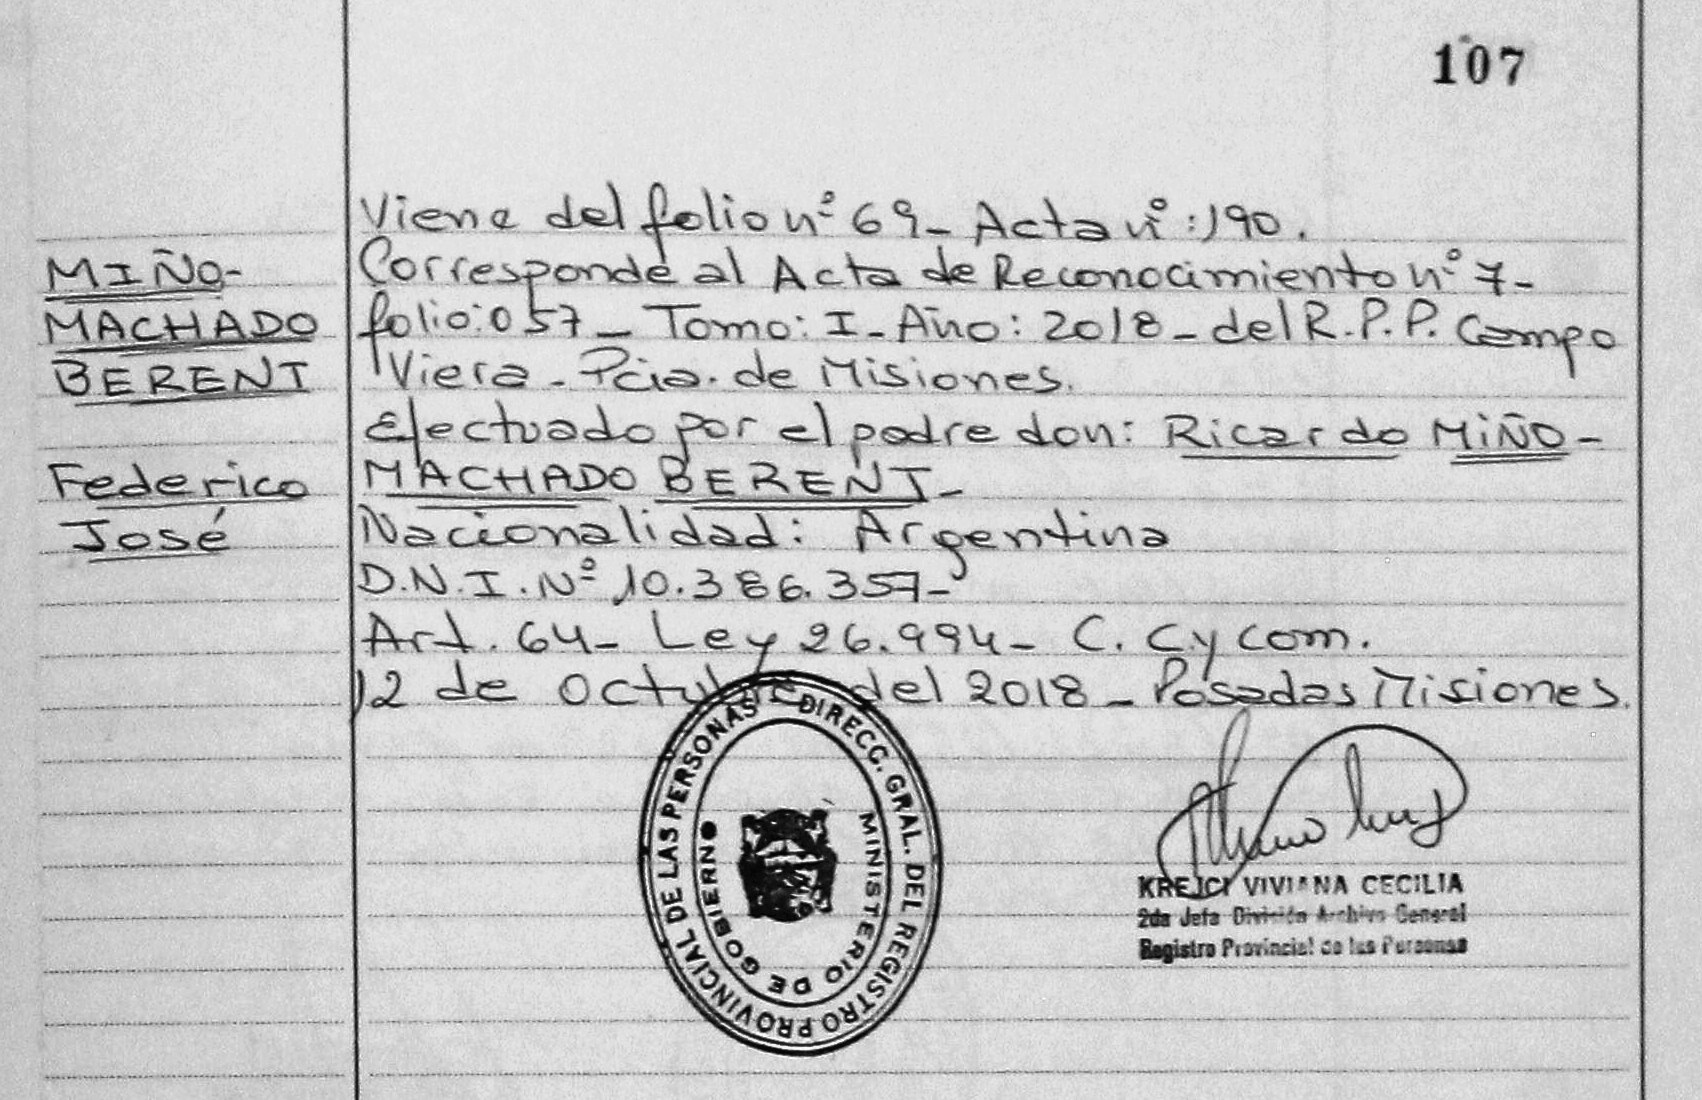 107
Viene del folio nº 69- Acta nº:190.
MIÑO-
MACHADO
BERENT
Federico
José
Corresponde al Acta de Reconocimiento nº 7-
folio:057- Tomo: I- Año: 2018- del R.P.P. Campo
Viera- Pcia. de Misiones.
Efectuado por el padre don: Ricardo MIÑO-
MACHADO BERENT-
Nacionalidad: Argentina
D.N.I. Nº 10.386.357-
Art. 64- Ley 26.994- C. C y Com.
12 de Octubre del 2018- Posadas Misiones.
DIRECC. GRAL. DEL REGISTRO PROVINCIAL DE LAS PERSONAS
MINISTERIO DE GOBIERNO
KREJCI VIVIANA CECILIA
2da Jefa División Archivo General
Registro Provincial de las Personas